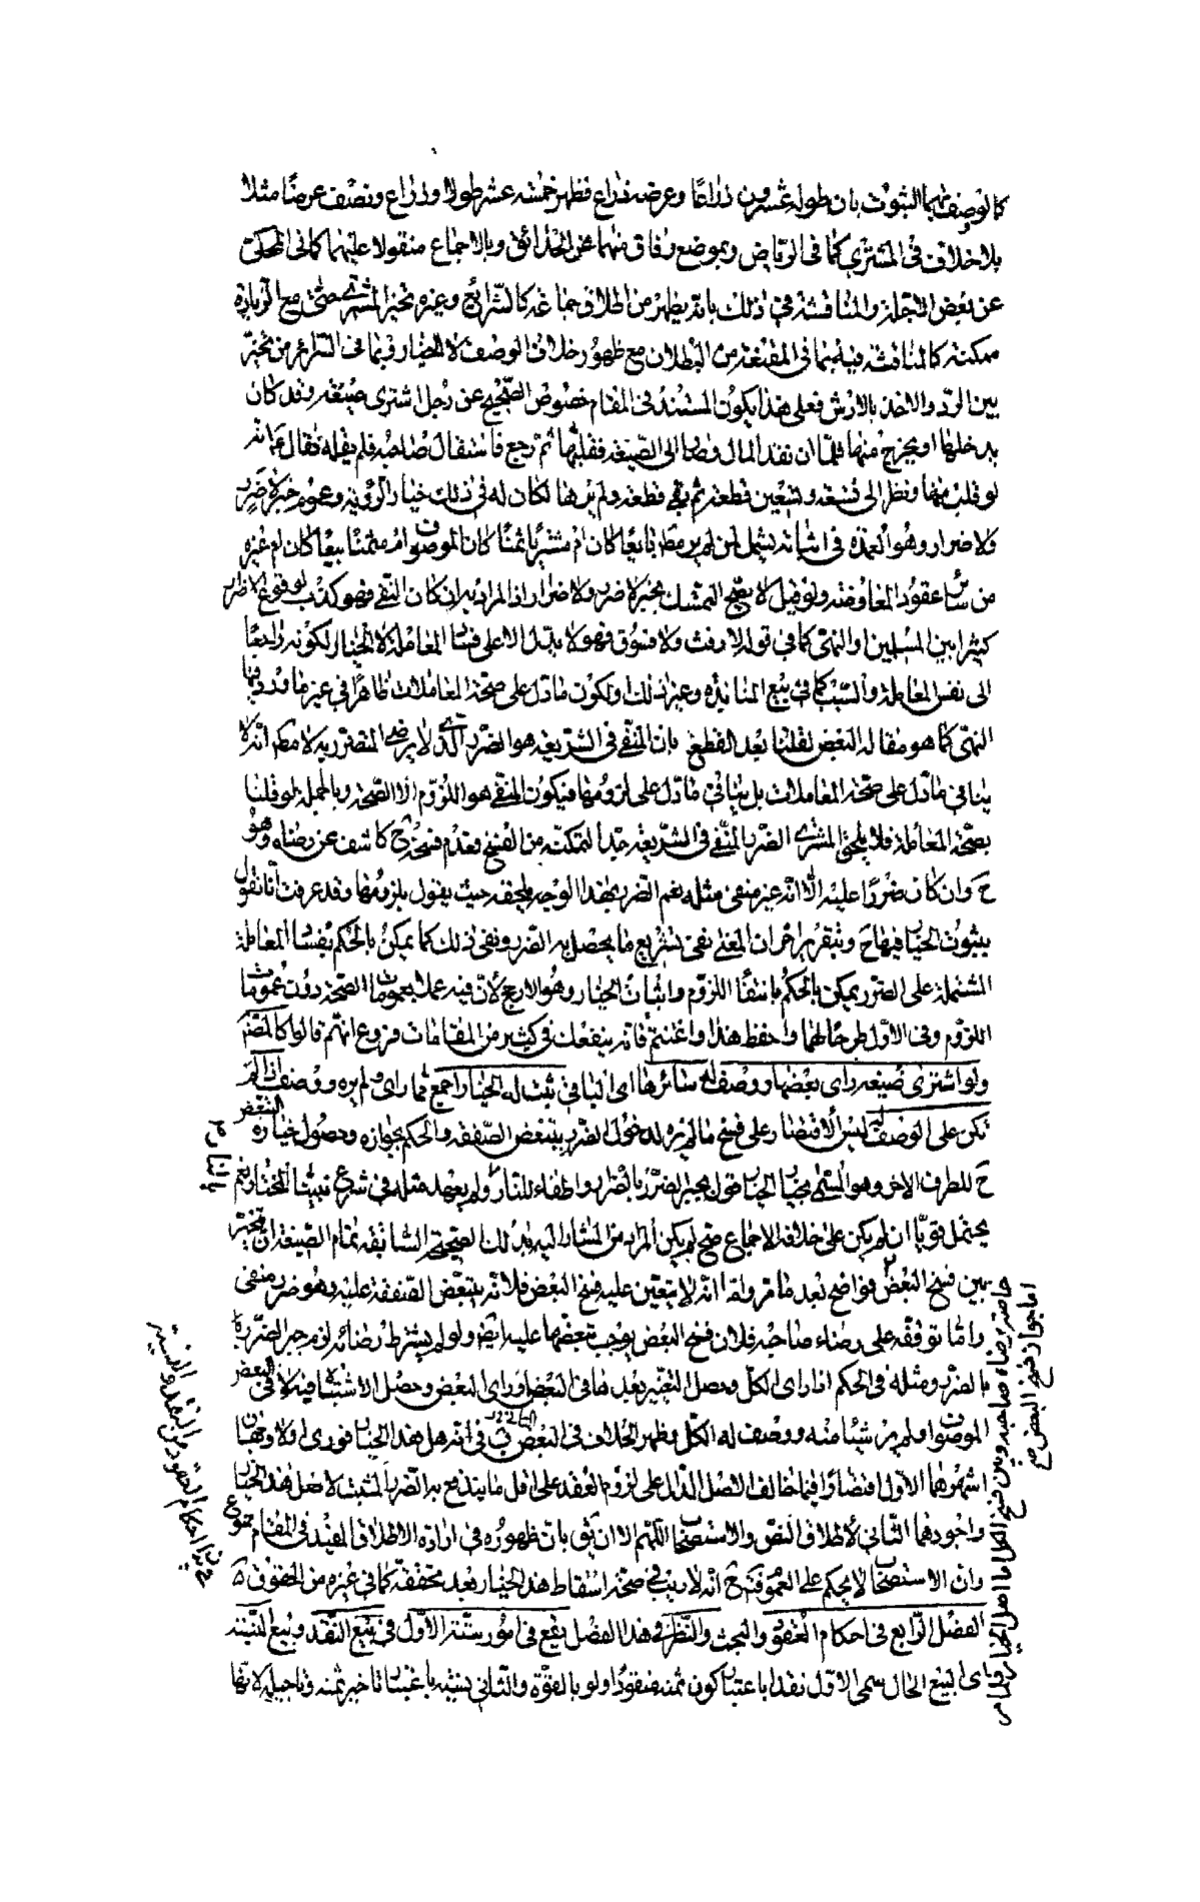 كما لو وصف لهما الثوب بان طوله عشرون ذراعا وعرضه ذراع فظهر خمسة عشر طولا وذراع ونصف عرضا مثلا
بلا خلاف في المشتري كما في الرياض وبموضع وفاق منهما عن الحدائق وبالاجماع منقولا عليهما كما في المحكي
عن بعض الاجلة والمناقشة في ذلك بانه يظهر من اطلاق جماعة كالشرائع وغيره تخير المشتري حتى مع الزيادة
ممكنة كالمناقشة فيه بما في المقنعة من البطلان مع ظهور خلاف الوصف لا الخيار وبما في السرائر من تخيره
بين الرد والاخذ بالارش فعلى هذا يكون المستند في المقام خصوص الصحيح عن رجل اشترى ضيعة وقد كان
يدخلها او يخرج منها فلما ان نقد المال وصار الى الضيعة فقلبها ثم رجع فاستقال صاحبه فلم يقله فقال ع انه
لو قلب منها ونظر الى تسعة وتسعين قطعة ثم بقي قطعة ولم يرها لكان له في ذلك خيار الرؤية وعموم خبر لا ضرر
ولا ضرار وهو العمدة في اثباته ليشمل لمن لم ير مطلقا بايعا كان ام مشتريا ثمنا كان الموصوف ام مثمنا بيعا كان ام غيره
من سائر عقود المعاوضة ولو قيل لا يصح التمسك بخبر لا ضرر ولا ضرار اذ المراد به ان كان النفي فهو كذب لوقوع الاضرار
كثيرا بين المسلمين او النهي كما في قوله لا رفث ولا فسوق فهو لا يدل الا على فساد المعاملة لا الخيار لكونه راجعا
الى نفس المعاملة والسبب كما في بيع المنابذة وغير ذلك او لكون ما دل على صحة المعاملات ظاهرا في غير ما ورد فيها
النهي كما هو مقالة البعض لقلنا بعد القطع بان المنفي في الشريعة هو الضرر الذي لا يرضى المتضرر به لا مطلقا انه لا
ينافي ما دل على صحة المعاملات بل ينافي ما دل على لزومها فيكون المنفي هو اللزوم لا الصحة وبالجملة لو قلنا
بصحة المعاملة فلا يلحق المشتري الضرر المنفي في الشريعة جدا لتمكنه من الفسخ فعدم فسخه ح كاشف عن رضاه وهو
ح وان كان ضررا عليه الا انه غير منفي مثله نعم الضرر بهذا الوجه يلحقه حيث يقول بلزومها وقد عرفت انا نقول
بثبوت الخيار فيها ح وبتقرير اخر ان المعنى نفي تشريع ما يحصل به الضرر ونفي ذلك كما يمكن بالحكم بفساد المعاملة
المشتملة على الضرر يمكن بالحكم بانتفاء اللزوم واثبات الخيار وهو الارجح لأن فيه عملا بعمومات الصحة دون عمومات
اللزوم وفي الاول طرحا لهما واحفظ هذا واغتنم فانه ينفعك في كثير من المقامات فروع انهم قالوا كالمصنف
ولو اشترى ضيعة راى بعضها ووصف له سائرها اى الباقي ثبت له الخيار اجمع فيما راى ولم يره ووصف اذا لم
تكن على الوصف ليس له الاقتصار على فسخ ما لم يره لدخول الضرر بتبعض الصفقة والحكم بجوازه وحصول خيار التبعض
ح للطرف الاخر وهو المسمى بخيار الخيار قول بجبر الضرر بالضرر واطفاء للنار بالنار ولم يعهد مثله في شرع نبينا المختار نعم
يحتمل قويا ان لم يكن على خلافه الاجماع صح لم يكن المراد من المشار اليه بذلك الصحيحة السابقة تمام الضيعة ان تخيره
بين فسخ البعض فواضح بعد ما مر ولا انه لا يتعين عليه فسخ البعض فلانه بتبعض الصفقة عليه وهو ضرر منفي
واما توقفه على رضاء صاحبه فلان فسخ البعض يوجب تبعضها عليه ايضا ولو لم يشترط رضائه لزم جبر الضرر
بالضرر ومثله في الحكم اذا راى الكل وحصل التغيير بعدها في البعض او راى البعض وحصل الاشتباه فيه لا في البعض
الموصوف او لم ير شيئا منه ووصف له الكل وظهر الخلاف في البعض الثاني في انه هل هذا الخيار فوري اولا وجهان
اشهرهما الاول اقتصارا فيما خالف الاصل الدال على لزوم العقد على اقل ما يندفع به الضرر المثبت لاصل هذا الخيار
واجودهما الثاني لاطلاق النص والاستصحاب اللهم الا ان يق بان ظهوره في ارادة الاطلاق المفيد في المقام ممنوع
وان الاستصحاب لا يحكم على العموم فتح انه لا ريب في صحة اسقاط هذا الخيار بعد تحققه كما في غيره من الحقوق
الفصل الرابع في احكام العقود والبحث والنظر في هذا الفصل يقع في امور ستة الاول في بيع النقد وبيع النسيئة
اى البيع الحال سمي الاول نقدا باعتبار كون ثمنه منقودا ولو بالقوة والثاني نسيئة باعتبار تاخير ثمنه وتاجيله لانها
بالنار م
في بيان احكام العقود من النقد والنسيئة
اما جواز فسخ البعض مع